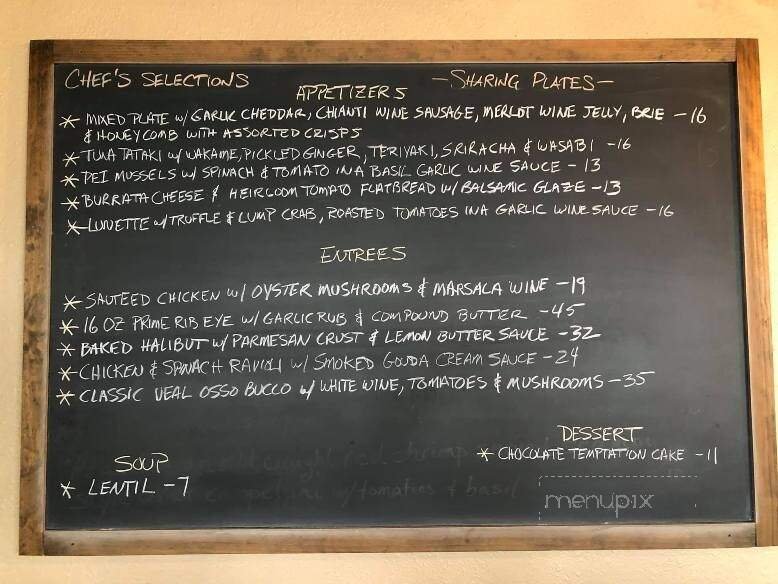 CHEF'S SELECTIONS
- SHARING PLATES -
APPETIZERS
* MIXED PLATE w/ GARLIC CHEDDAR, CHIANTI WINE SAUSAGE, MERLOT WINE JELLY, BRIE - 16
& HONEYCOMB WITH ASSORTED CRISPS
* TUNA TATAKI w/ WAKAME, PICKLED GINGER, TERIYAKI, SRIRACHA & WASABI - 16
* PEI MUSSELS w/ SPINACH & TOMATO IN A BASIL GARLIC WINE SAUCE - 13
* BURRATA CHEESE & HEIRLOOM TOMATO FLATBREAD w/ BALSAMIC GLAZE - 13
* LUNETTE w/ TRUFFLE & LUMP CRAB, ROASTED TOMATOES IN A GARLIC WINE SAUCE - 16
ENTREES
* SAUTEED CHICKEN w/ OYSTER MUSHROOMS & MARSALA WINE - 19
* 16 OZ PRIME RIB EYE w/ GARLIC RUB & COMPOUND BUTTER - 45
* BAKED HALIBUT w/ PARMESAN CRUST & LEMON BUTTER SAUCE - 32
* CHICKEN & SPINACH RAVIOLI w/ SMOKED GOUDA CREAM SAUCE - 24
* CLASSIC VEAL OSSO BUCCO w/ WHITE WINE, TOMATOES & MUSHROOMS - 35
DESSERT
* CHOCOLATE TEMPTATION CAKE - 11
SOUP
* LENTIL - 7
shrimp
w/ tomatoes & basil
menupix